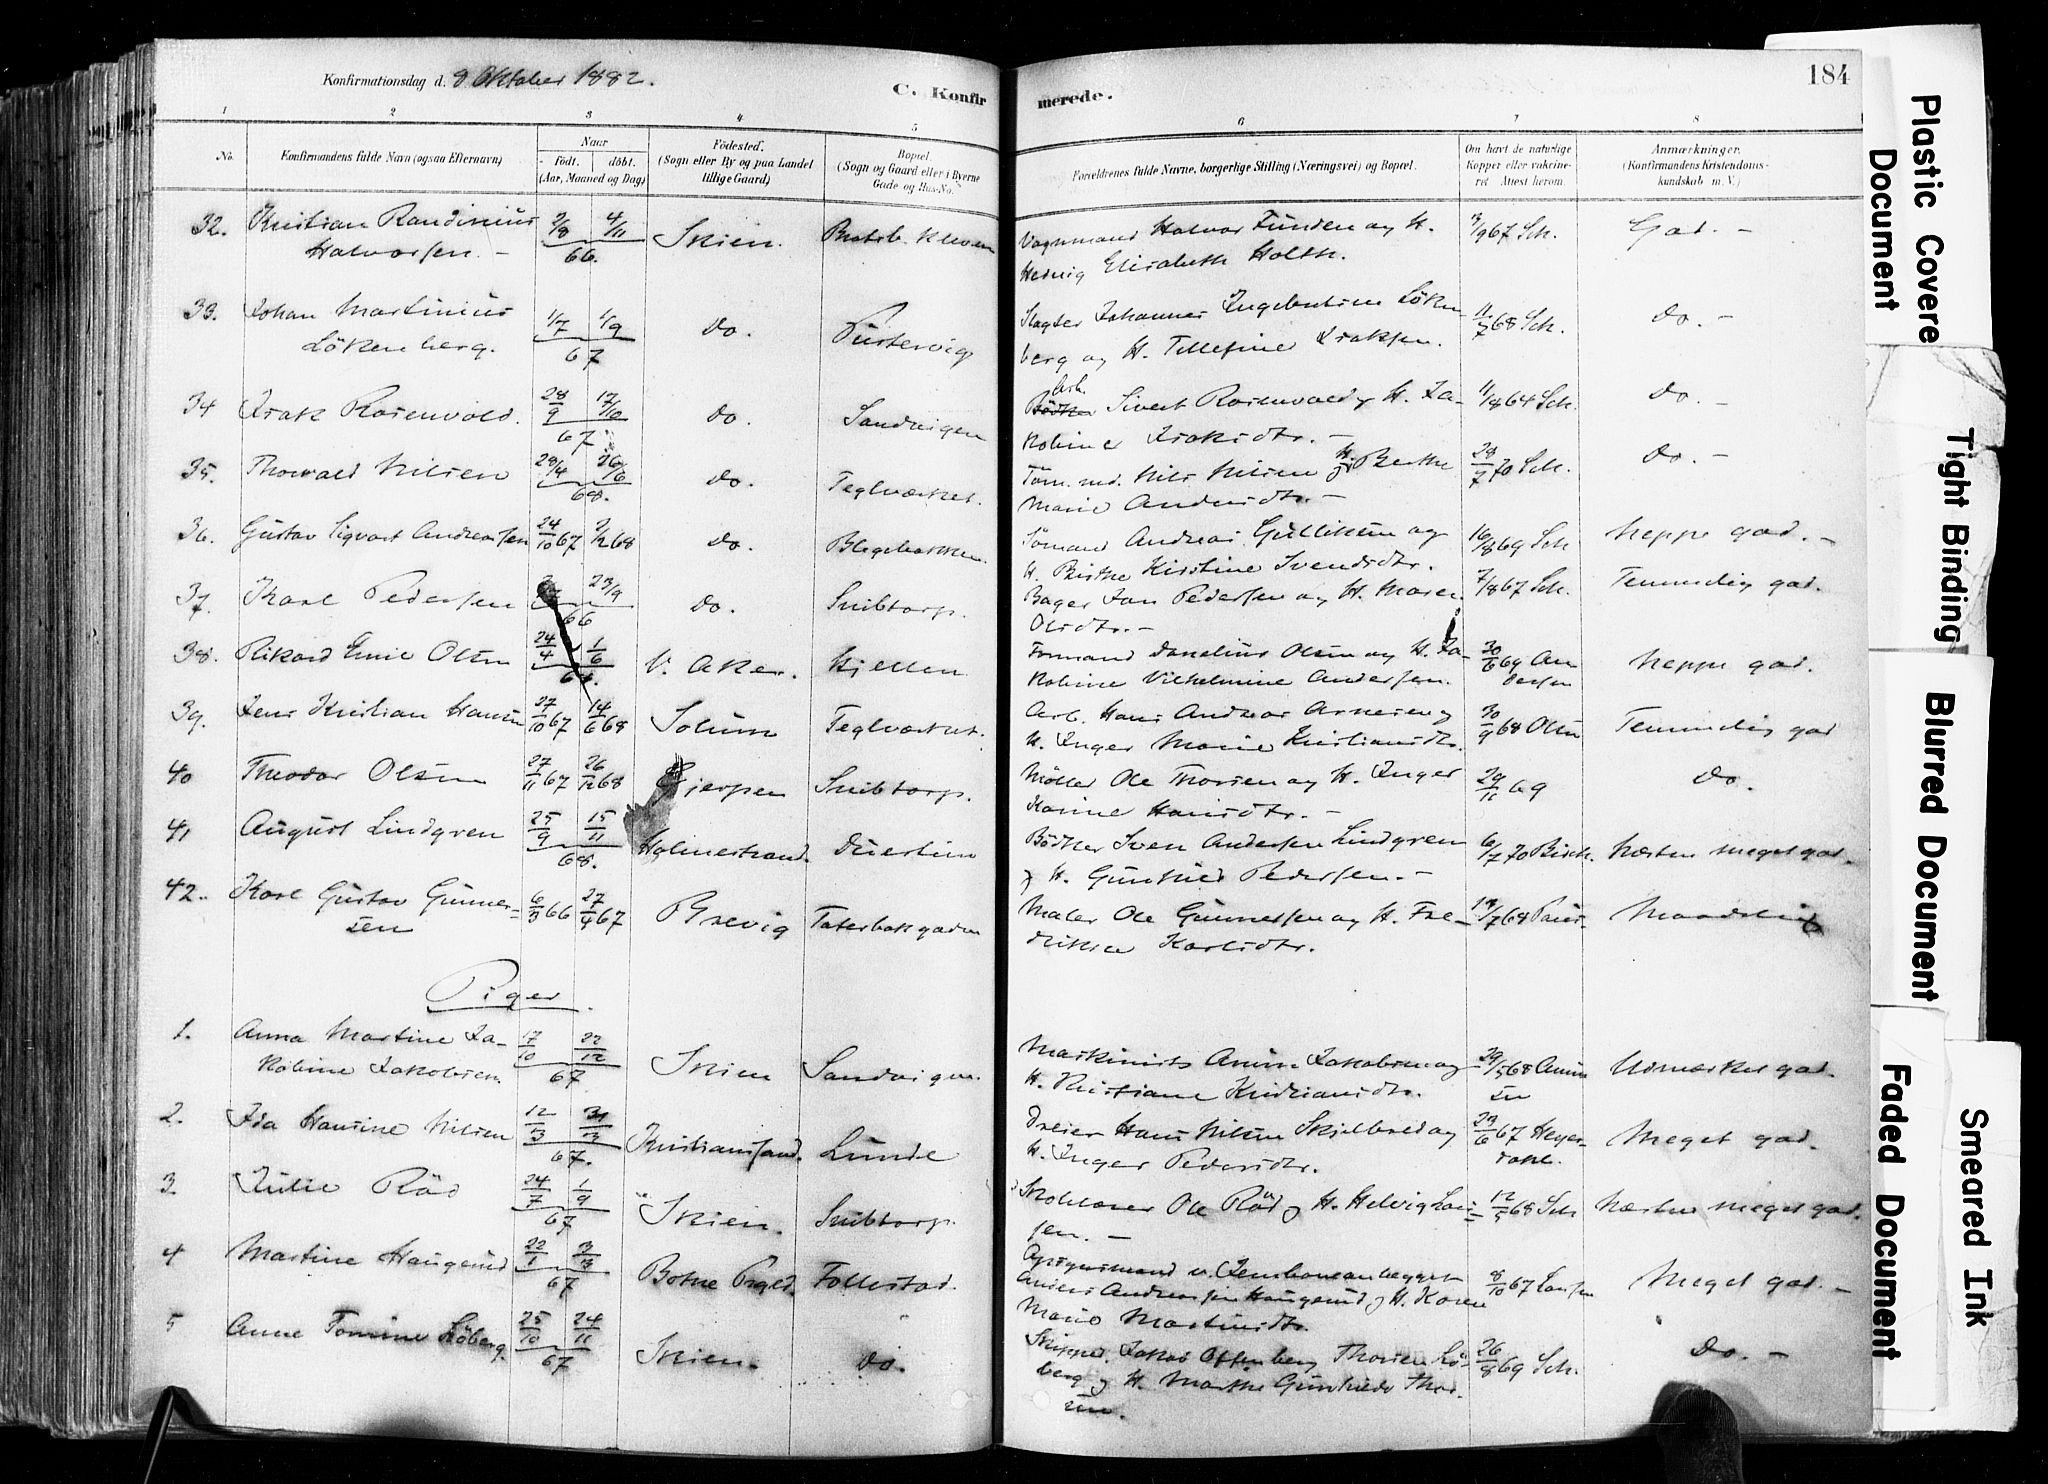 Konfirmationsdag d. 8 Oktober 1882.
C. Konfirmerede.
184
1 2 3 4 5 6 7 8
No.
Konfirmandens fulde Navn (ogsaa Efternavn)
Naar
født. døbt.
(Aar, Maaned og Dag)
Fødested.
(Sogn eller By og paa Landet
tillige Gaard)
Bopæl.
(Sogn og Gaard eller i Byerne
Gade og Hus-No.
Forældrenes fulde Navne, borgerlige Stilling (Næringsvei) og Bopæl.
Om havt de naturlige
Kopper eller vakcine-
ret Attest herom.
Anmærkninger.
(Konfirmandens Kristendoms-
kundskab m. V.)
32. Kristian Randinius
Halvorsen. -
2/8 4/11
66.
Skien.
Bratsb. Kleven
Vognmand Halvor Funden og H.
Hedvig Elisabeth Holth.
/9 67 Sch.
God. -
33. Johan Martinius
Lökenberg.
1/7 1/9
67
Do.
Pustervig
Slagter Johannes Ingebretsen Löken
berg og H. Tellefine Isaksen.
11/7 68 Sch.
Do. -
34 Isak Rosenvold.
28/9 17/10
67
Do.
Sandvigen
Arb.
Sivert Rosenvold og H. Ja-
kobine Isaksdtr. -
11/8 64 Sch.
Do. -
35. Thorvald Nilsen
28/4 26/6
68.
Do.
Teglværket.
Töm. md. Nils Nilsen og H. Berthe
Marie Andersdtr. -
28/7 70 Sch.
Do. -
36. Gustav Sigvart Andreassen
24/10 67 2/2 68
Do.
Blegebakken.
Sömand Andreas Gulliksen og
H. Birthe Kirstine Svendsdtr.
16/8 69 Sch
Neppe god. -
37. Karl Pedersen
23/9
66
Do.
Snibtorp.
Bager Jan Pedersen og H. Maren
Olsdtr. -
7/8 67 Sch.
Temmelig god.
38. Rikard Emil Olsen
24/4 1/6
68.
V. Aker.
Hjellen
Formand Danelius Olsen og H. Ja-
kobine Vilhelmine Andersen.
30/6 69 An
dersen
Neppe god.
39. Jens Kristian Hansen
27/10 67 14/6 68
Solum
Teglværket.
Arb. Hans Andreas Arnesen og
H. Inger Marie Kristiansdtr.
30/9 68 Olsen
Temmelig god
40 Theodor Olsen
27/11 67 26/12 68
Gjerpen
Snibtorp.
Möller Ole Thorsen og H. Inger
Karine Hansdtr. -
29/11 69
Do.
41 August Lindgren
25/9 15/11
68.
Holmestrand.
Duestien
Bödker Sven Andersen Lindgren
og H. Gunhild Pedersen. -
6/7 70 Bisch.
Næsten meget god.
42. Karl Gustav Gunner=
sen
6/3 66 27/4 67
Brevig
Taterbakgaden
Maler Ole Gunnersen og H. Fre-
drikke Karlsdtr.
18/7 68 Paus.
Maadelig
Piger.
1. Anna Martine Ja-
kobine Jakobsen.
17/10 22/12
67.
Skien
Sandvigen.
Maskinist Anun Jakobsen og
H. Kristiane Kristiansdtr.
29/5 68 Anun
sen
Udmærket god.
2. Ida Hansine Nilsen
12/3 31/3
67.
Kristianssand.
Lunde
Dreier Hans Nilsen Skjelbred og
H. Inger Pedersdtr.
23/6 67 Heyer
dahl.
Meget god.
3. Julie Röd
24/7 1/9
67
Skien.
Snibtorp.
Skolelærer Ole Röd og H. Helvig Lar=
sen. -
12/5 68 Sch
Næsten meget god.
4 Martine Haugerud
22/1 3/3
67
Botne Prgld.
Follestad.
Opsynsmand v. Jernbaneanlegget
Anders Andreassen Haugerud og H. Karen
Marie Martinsdtr.
8/10 67 Larsen
Meget god. -
5 Anne Tomine Löberg.
25/10 24/11
67
Skien.
Do.
Skipper Jakob Offenberg Thorsen Lö-
berg og H. Marthe Gunhilde Thor
sen.
26/8 69 Sch.
Do. -
Plastic Covere
Document
Tight Binding
Blurred Document
Faded Document
Smeared Ink